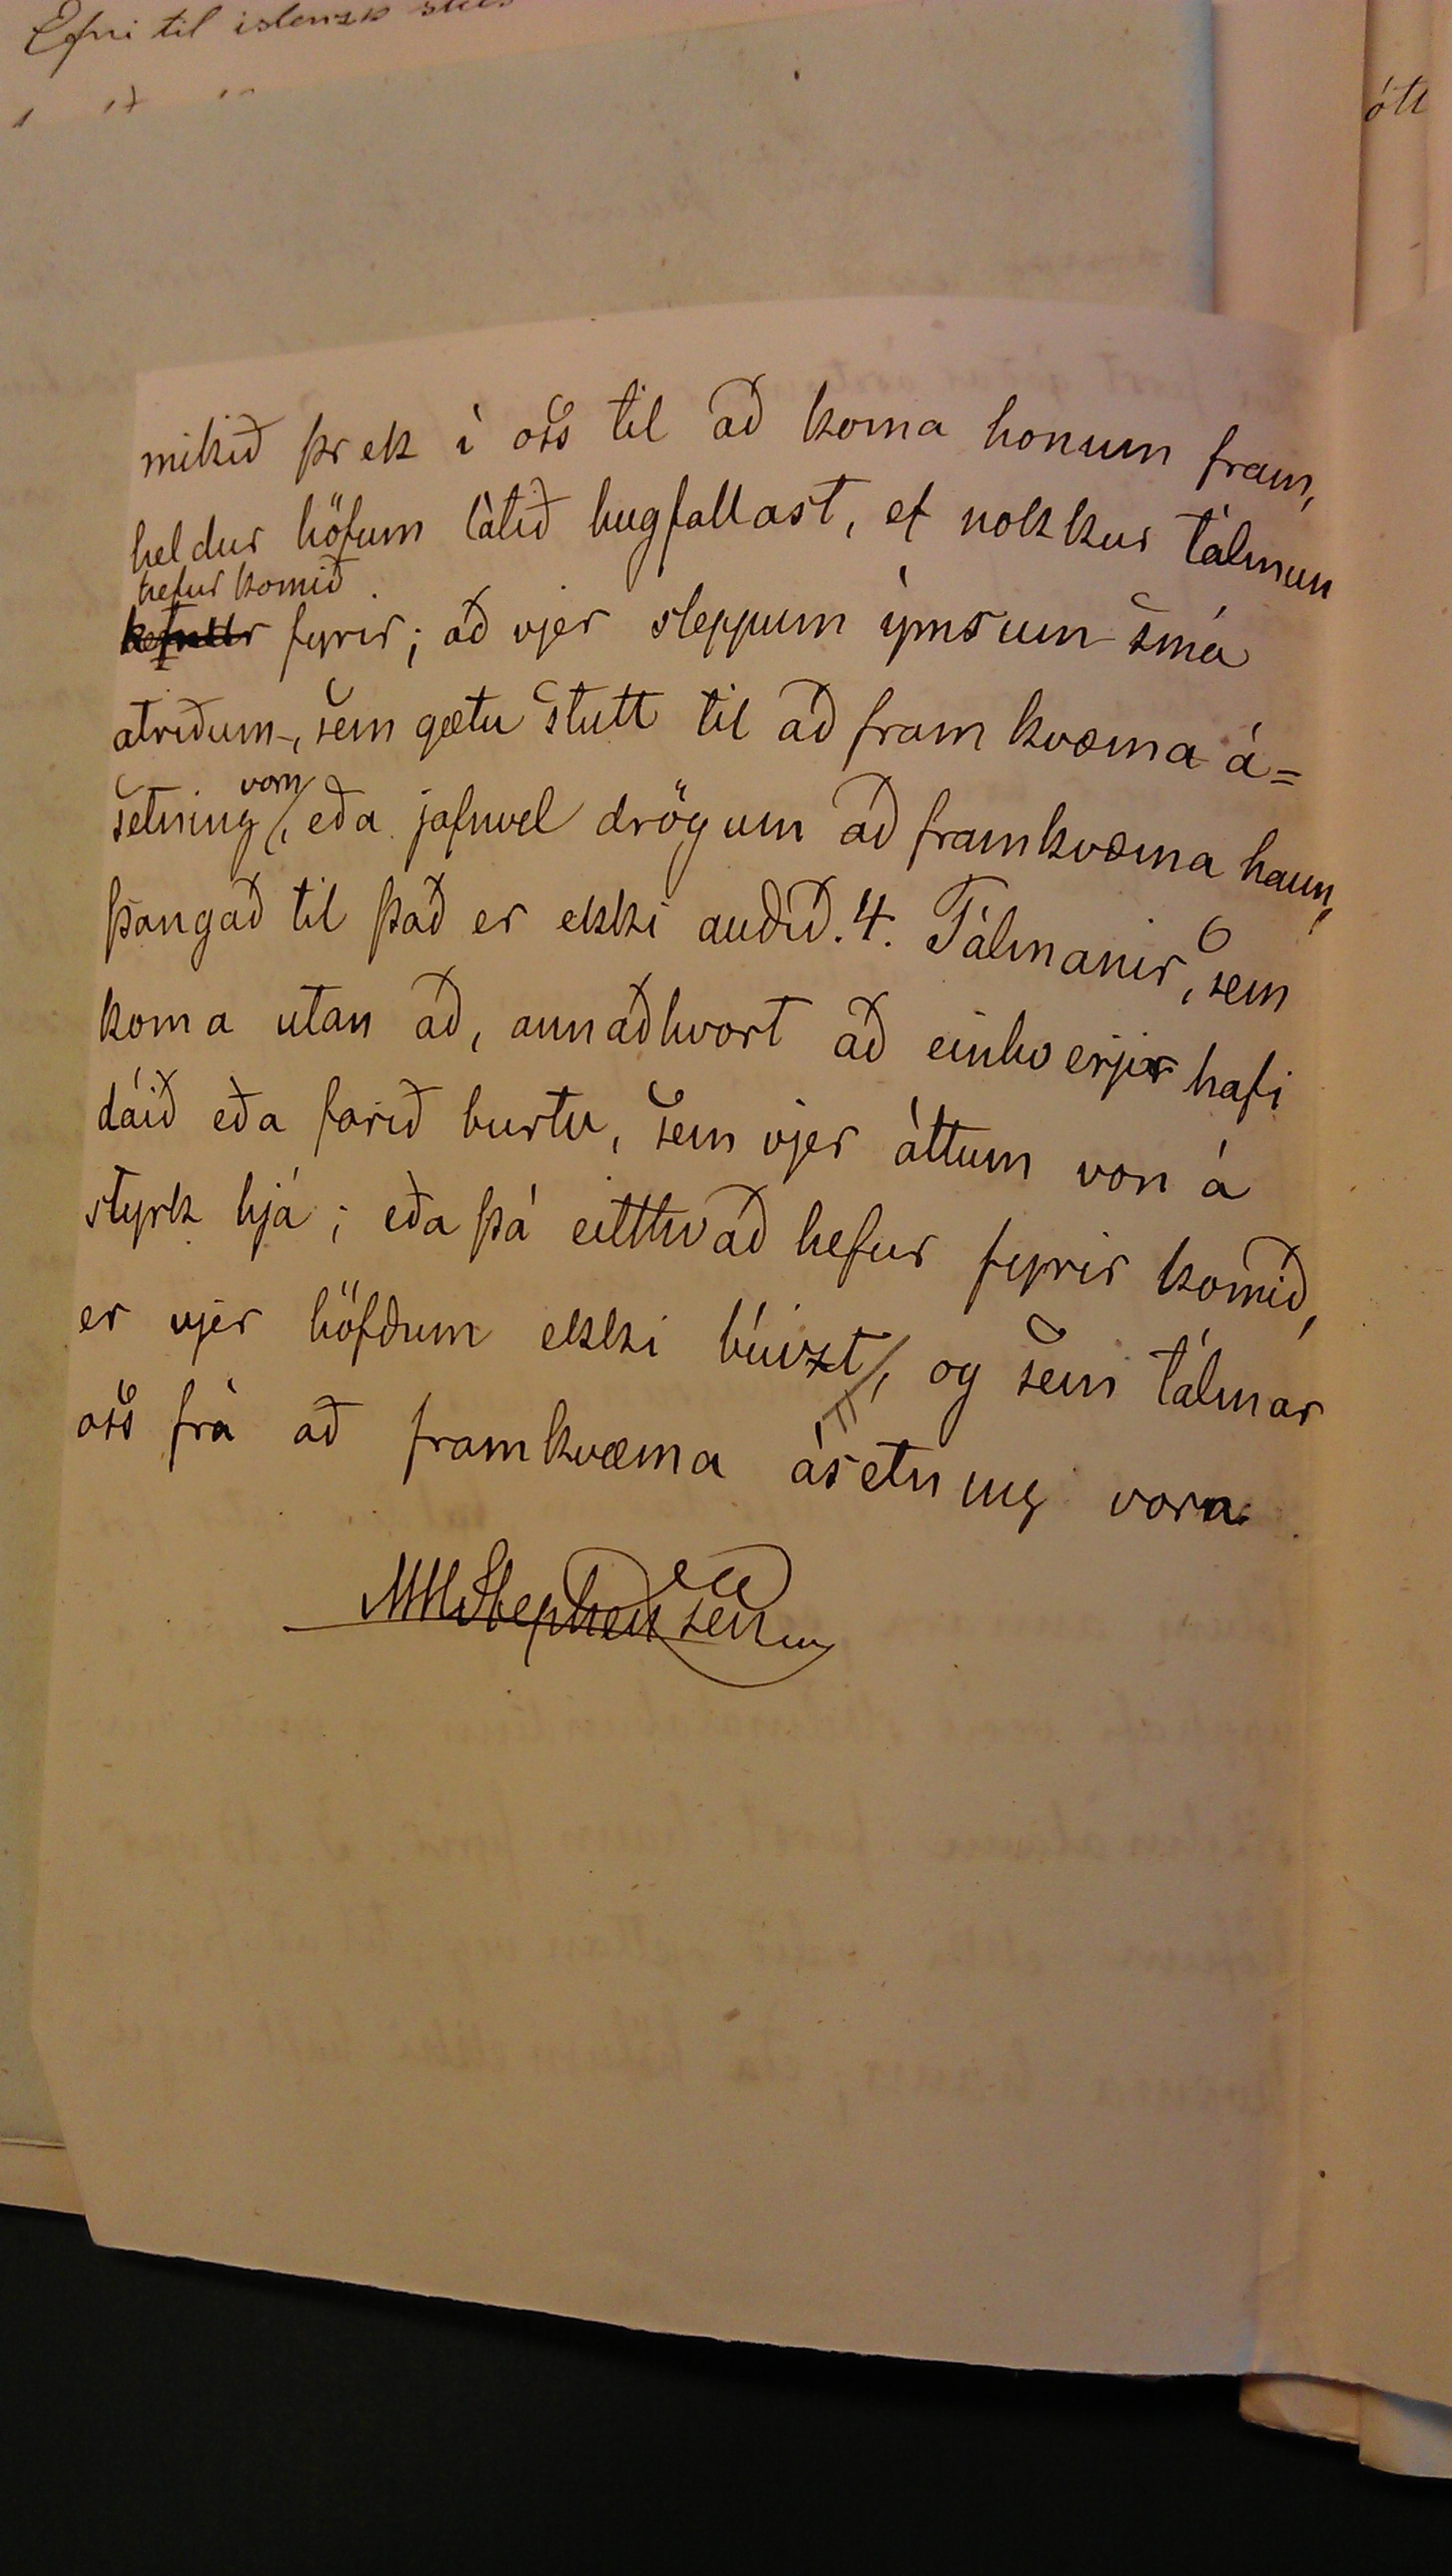 Efni til íslenzk
ótt
mikið þrek í oss til að koma honum fram,
heldur höfum látið hugfallast, ef nokkur tálmun
hefur komið
fyrir; að vjer sleppum ýmsum smá
atriðum, sem gætu stutt til að fram kvæma á=
vorn
setning, eða jafnvel drögum að framkvæma hann,
þangað til það er ekki auðið. 4. Tálmanir, sem
koma utan að, annaðhvort að einhverjir hafi
dáið eða farið burtu, sem vjer áttum von á
styrk hjá; eða þá eitthvað hefur fyrir komið,
er vjer höfðum ekki búizt, og sem tálmar
oss frá að framkvæma ásetning vorn.
MMStephensen